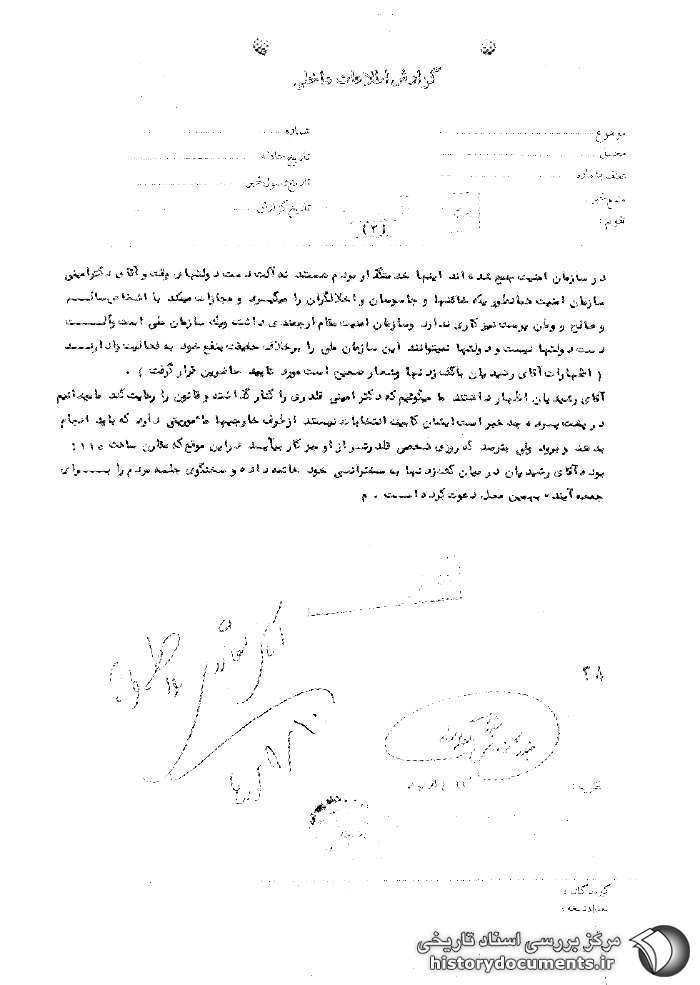 گزارش اطلاعات داخلی
موضوع
شماره
محل
تاریخ حادثه
تاریخ وصول خبر
منبع خبر :
تاریخ گزارش
تقویم :
(۲)
در سازمان امنیت جمع شده اند اینها خدمتگذار مردم هستند نه آلت دست دولتهای وقت و آقای دکتر امینی
سازمان امنیت همانطوریکه خائنها و جاسوسان و اخلالگران را میگیرد و مجازات میکند با اشخاص سالم
و صالح و وطن پرست نیز کاری ندارد و سازمان امنیت مقام ارجمندی داشته ویک سازمان ملی است وآلت
دست دولتها نیست و دولتها نمیتوانند این سازمان ملی را برخلاف حقیقت بنفع خود به فعالیت وادارند
( اظهارات آقای رشیدیان باکف زدنها وشعار صحیح است مورد تایید حاضرین قرار گرفت ) .
آقای رشیدیان اظهار داشتند ما میگوئیم که دکتر امینی قلدری را کنار گذاشته و قانون را رعایت کند ما میدانیم
در پشت پرده چه خبر است ایشان کاندید انتخابات نیستند از طرف خارجیها مأموریتی دارد که باید انجام
بدهد و برود ولی بترسد که روزی شخصی قلدرتر از او نیز کار بیآید . در این موقع که مقارن ساعت
بوده آقای رشیدیان در میان کف زدنها به سخنرانی خود خاتمه داده و سخنگوی جلسه مردم را برای
جمعه آینده بهمین محل دعوت کرده است . م
۳۸
۴۰/۸/۱۰
گیرندگان :
تعداد نسخه :
مرکز بررسی اسناد تاریخی
historydocuments.ir